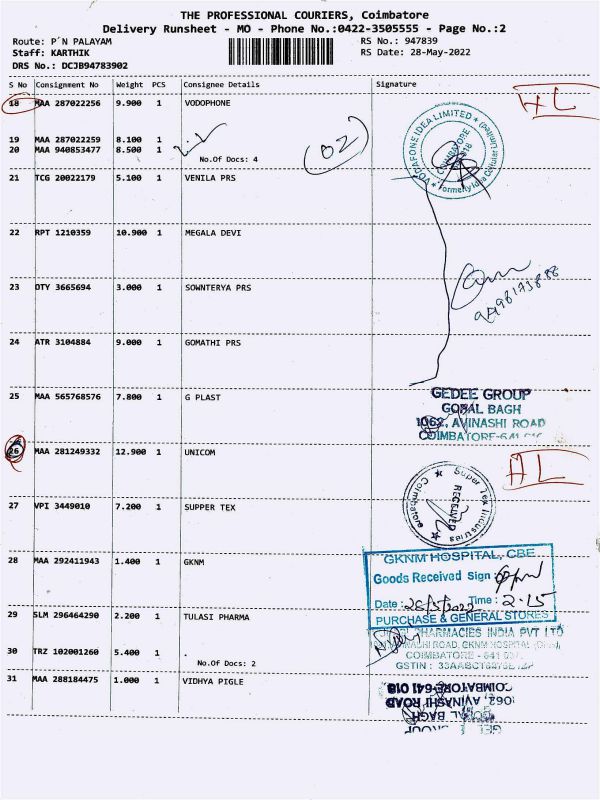 THE PROFESSIONAL COURIERS, Coimbatore
Delivery Runsheet - MO - Phone No.:0422-3505555 - Page No.:2
Route: P´N PALAYAM
RS No.: 947839
Staff: KARTHIK
RS Date: 28-May-2022
DRS No.: DCJB94783902
S No Consignment No Weight PCS Consignee Details Signature
18 MAA 287022256 9.900 1 VODOPHONE
19 MAA 287022259 8.100 1
20 MAA 940853477 8.500 1
No.Of Docs: 4
02
VODAFONE IDEA LIMITED
COIMBATORE
21 TCG 20022179 5.100 1 VENILA PRS
22 RPT 1210359 10.900 1 MEGALA DEVI
23 OTY 3665694 3.000 1 SOWNTERYA PRS
24 ATR 3104884 9.000 1 GOMATHI PRS
25 MAA 565768576 7.800 1 G PLAST
GEDEE GROUP
GOPAL BAGH
1062, AVINASHI ROAD
COIMBATORE-641
26 MAA 281249332 12.900 1 UNICOM
27 VPI 3449010 7.200 1 SUPPER TEX
Super Tex Industries
RECEIVED
Coimbatore
28 MAA 292411943 1.400 1 GKNM
GKNM HOSPITAL, CBE
Goods Received Sign
Date : 28/5/2022 Time : 2.15
PURCHASE & GENERAL STORES
29 SLM 296464290 2.200 1 TULASI PHARMA
PHARMACIES INDIA PVT LTD
ROAD, GKNM HOSPITAL
COIMBATORE - 641
GSTIN :
30 TRZ 102001260 5.400 1 .
No.Of Docs: 2
31 MAA 288184475 1.000 1 VIDHYA PIGLE
COIMBATORE-641 018
1062, AVINASHI ROAD
GOPAL BAGH